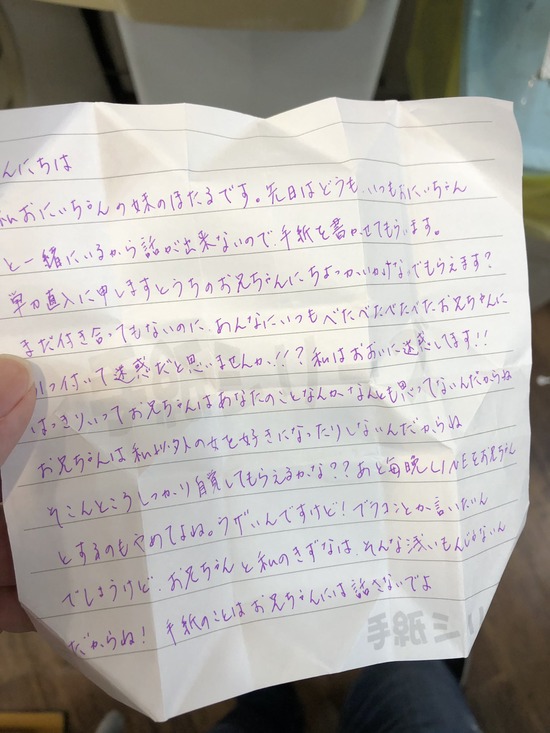 んにちは
私おにいちゃんの妹のほたるです。先日はどうも、いつもおにいちゃん
と一緒にいるから話が出来ないので、手紙を書かせてもらいます。
単刀直入に申しますとうちのお兄ちゃんにちょっかいかけないでもらえます?
まだ付き合ってもないのに、あんなにいつもべたべたべたべたお兄ちゃんに
っ付いて迷惑だと思いませんか!!?私はおおいに迷惑してます!!
はっきりいってお兄ちゃんはあなたのことなんか、なんとも思ってないんだからね
お兄ちゃんは私以外の女を好きになったりしないんだからね
そこんところしっかり自覚してもらえるかな??あと毎晩LINEをお兄ちゃん
とするのもやめてよね。うざいんですけど!ブラコンとか言いたいん
でしょうけど、お兄ちゃんと私のきずなは、そんな浅いもんじゃないん
だからね!手紙のことはお兄ちゃんには話さないでよ